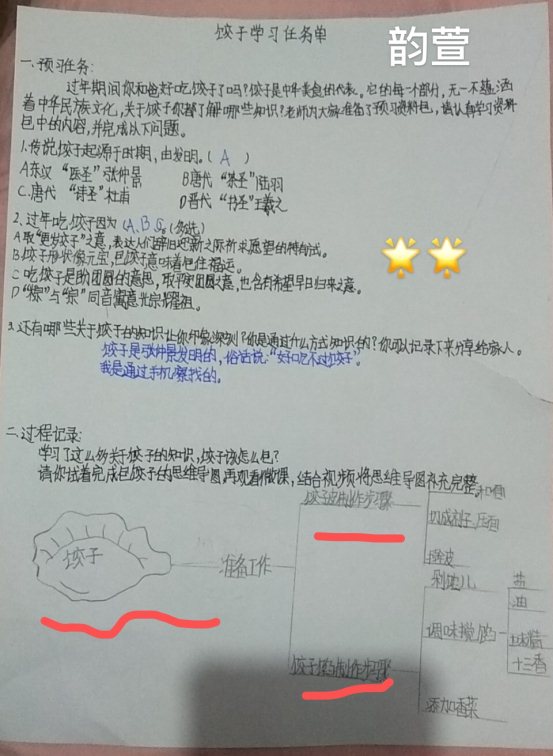 饺子学习任务单
韵萱
一、预习任务:
过年期间你和爸妈吃饺子了吗?饺子是中华美食的代表。它的每一个部分,无一不蕴涵
着中华民族文化,关于饺子你都了解哪些知识?老师为大家准备了预习资料包,请认真学习资料
包中的内容,并完成以下问题。
1.传说饺子起源于时期,由发明。( A )
A东汉“医圣”张仲景 B唐代“茶圣”陆羽
C.唐代“诗圣”杜甫 D晋代“书圣”王羲之
2.过年吃饺子因为(A.B.C。(多选)
A取“更岁饺子”之意,表达人们辞旧迎新之际祈求愿望的特有式。
B.饺子形状像元宝,包饺子意味着包住福运。
C 吃饺子是助团圆的意思,取平安团圆之意,也含有希望早日归来之意。
D“粽”与“宗”同音寓意光宗耀祖。
3.还有哪些关于饺子的知识让你印象深刻?你是通过什么方式知识的?你可以记录下来分享给家人。
饺子是张仲景发明的,俗话说:“好吃不过饺子”。
我是通过手机察找的。
二、过程记录:
学习了这么多关于饺子的知识,饺子该怎么包?
请你试着完成包饺子的思维导图,再观看微课,结合视频将思维导图补充完整。
饺子
准备工作
饺子皮制作步骤
和面
切成剂子,压扁
擀皮
饺子馅制作步骤
剁馅儿
调味搅馅
盐
油
味精
十三香
添加香菜